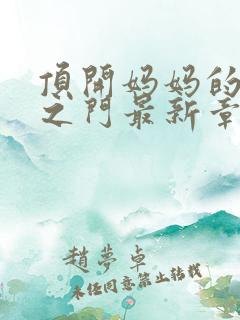 頂開妈妈的
之门最新章
趙夢卓
未经同意禁止转载